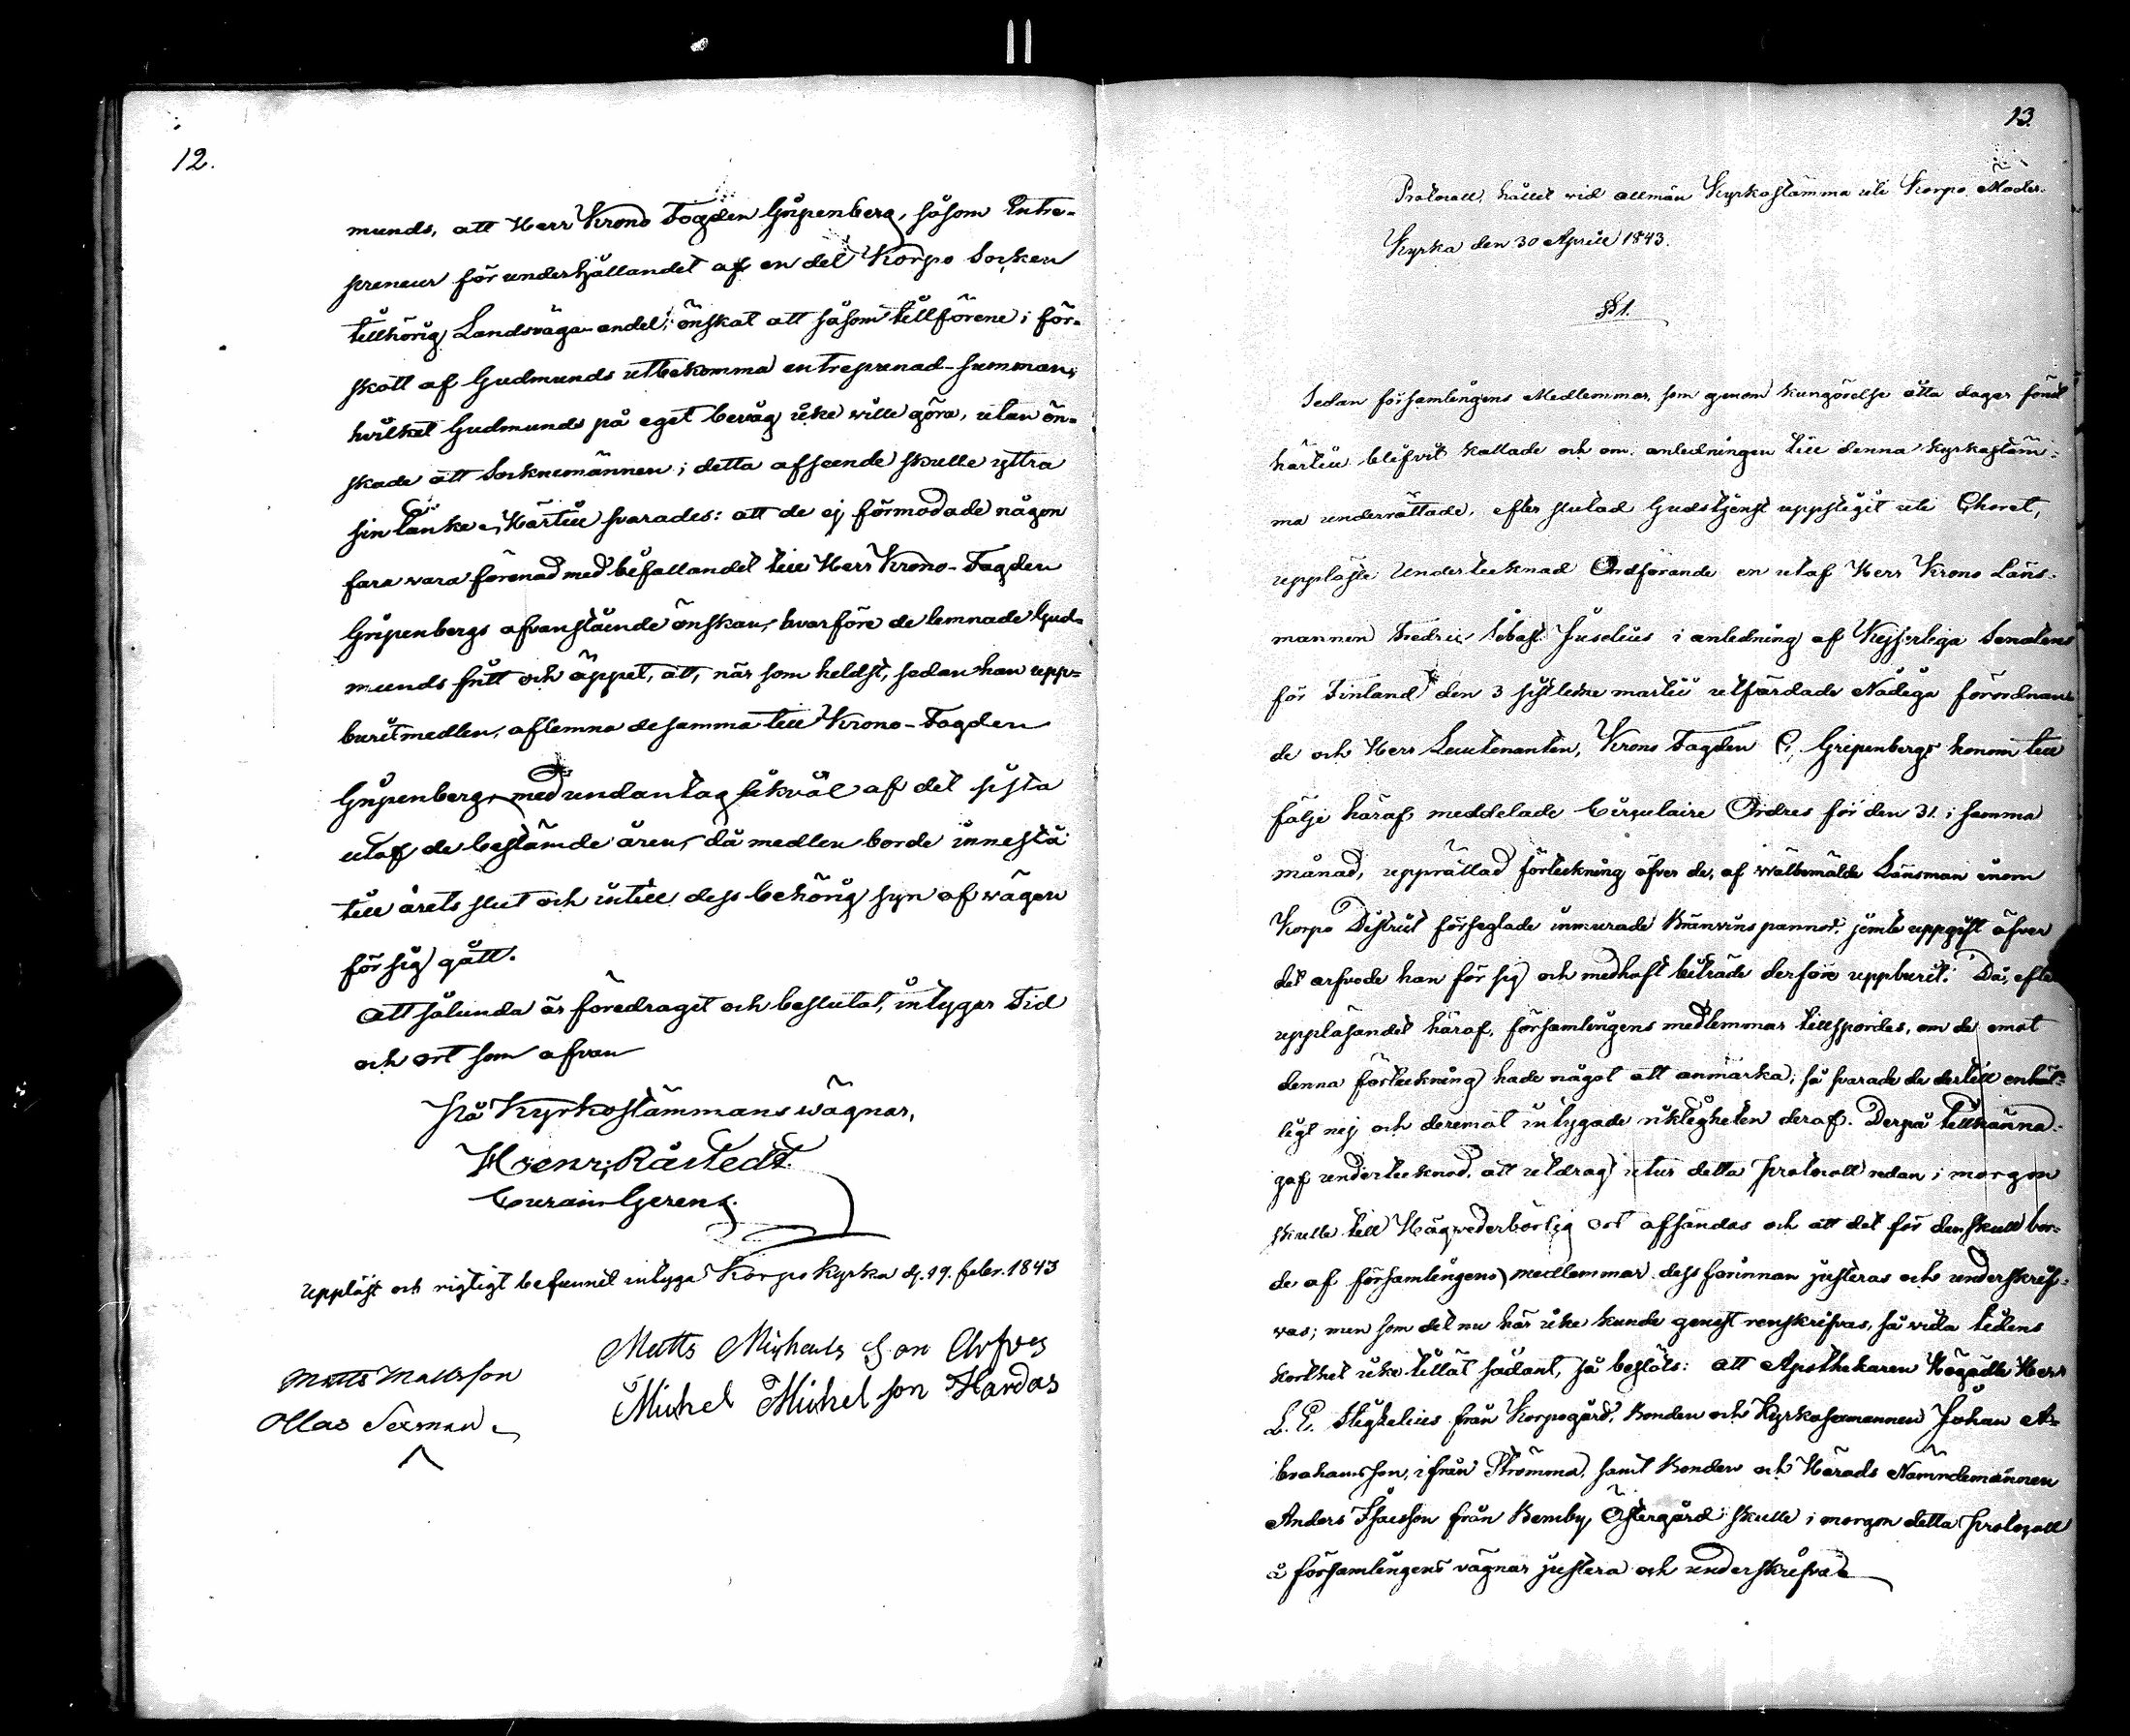 12.
munds, att Herr Krono Fogden Gripenberg, såsom Entre-
preneur för underhållandet af en del Korpo Socken
tillhörig Landsvägs-andel, önskat att såsom tillförene i för-
skott af Gudmunds utbekomma entreprenad-summan;
hvilket Gudmunds på eget bevåg icke wille göra, utan ön-
skade att Socknemännen i detta afseende skulle yttra
sin tanke. Härtill svarades: att de ej förmodade någon
fara wara förenad med bifallandet till Herr Krono-Fogden
Gripenbergs ofvanstående önskan, hvarföre de lemnade Gud-
munds fritt och öppet, att, när som heldst, sedan han upp-
burit medlen, aflemna desamma till Krono-Fogden
Gripenberg, med undantag likväl af det sista
utaf de bestämde åren, då medlen borde innestå
till årets slut och intill dess behörig syn af wägen
för sig gått.
Att sålunda är föredraget och beslutat, intygar Tid
och ort som ofvan
På Kyrkostämmans wägnar,
Henr. Råstedt.
Curam Gerens.
Uppläst och rigtigt befunnit intyga Korpo Kyrka d. 19. febr. 1843
Matts Michels Son Arfves
Matts Mattsson
Michel Michel son Hardas
Ollas Sexman
13.
Protocoll, hållit wid allmän Kyrkostämma uti Korpo Moder-
Kyrka den 30 Aprill 1843.
§ 1.
Sedan församlingens Medlemmar, som genom kungörelse åtta dagar förut
härtill blifvit kallade och om anledningen till denna kyrkostäm-
ma underrättade, efter slutad Gudstjenst uppstigit uti Choret,
uppläste Undertecknad Ordförande en utaf Herr Krono Läns-
mannen Fredric Sebast. Juselius i anledning af Kejserliga Senatens
för Finland den 3 sistledne martii utfärdade Nådiga förordnan-
de och Herr Lieutenanten, Krono Fogden C. Gripenbergs honom till
följe häraf meddelade Circulaire Ordres för den 31 i samma
månad, upprättad förteckning öfver de, af wälbemälde Länsman inom
Korpo District förseglade inmurade Bränvins pannor, jemte uppgift öfver
det arfvode han för sig och medhaft biträde derföre uppburit. Då, efter
uppläsandet häraf, församlingens medlemmar tillspordes, om de emot
denna förteckning hade något att anmärka; så svarade de dertill enhäl-
ligt nej och deremot intygade riktigheten deraf. Derpå tillkänna-
gaf undertecknad, att utdrag utur detta Protocoll redan i morgon
skulle till Högvederbörlig ort afsändas och att det för den skull bor-
de af församlingens medlemmar dess förinnan justeras och underskrif-
vas; men som det nu här icke kunde genast renskrifvas, så vida tidens
korthet icke tillät sådant, så beslöts: att Apothekaren Högädle Herr
L. E. Stigzelius från Korpogård, Bonden och Kyrkosexmannen Johan A-
brahamsson, ifrån Strömma, samt Bonden och Härads Nämndemannen
Anders Isacsson från Bemby Östergård skulle i morgon detta Protocoll
å församlingens vägnar justera och underskrifva